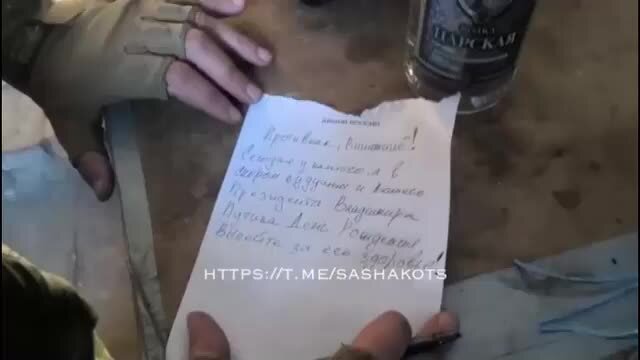 ЦАРСКАЯ
Противник, Внимание!
Сегодня у нашего, а в
скором будущем и вашего
Президента Владимира
Путина День Рождения!
Выпейте за его здоровье!
HTTPS://T.ME/SASHAKOTS